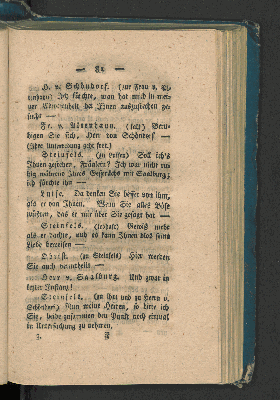 — 81 —
H. v. Schöndorf. (zur Frau v. Al-
tenhayn) Ich fürchte, man hat mich in mei-
ner Abwesenheit bei Ihnen auszustechen ge-
sucht —
Fr. v. Altenhayn. (kalt) Beru-
higen Sie sich, Herr von Schöndorf —
(Ihre Unterredung geht fort.)
Steinfels. (zu Luisen) Saß ich's
Ihnen geziehen, Fräulein? Ich war nicht ru-
hig während Ihres Gesprächs mit Saalburg;
ich fürchte ihn —
Luise. Da denken Sie besser von ihm,
als er von Ihnen. Wenn Sie alles Böse
wüßten, das er mir über Sie gesagt hat —
Steinfels. (lebhaft) Gewiß mehr
als er durfte, und es kann Ihnen also seine
Liebe beweisen —
Obrist. (zu Steinfels) Hier werden
Sie auch verurtheilt —
Herr v. Saalburg. Und zwar in
letzter Instanz!
Steinfels. (zu ihm und zu Herrn v.
Schöndorf) Nun meine Herren, so bitte ich
Sie, beide zusammen den Punkt noch einmal
in Untersuchung zu nehmen,
3. F